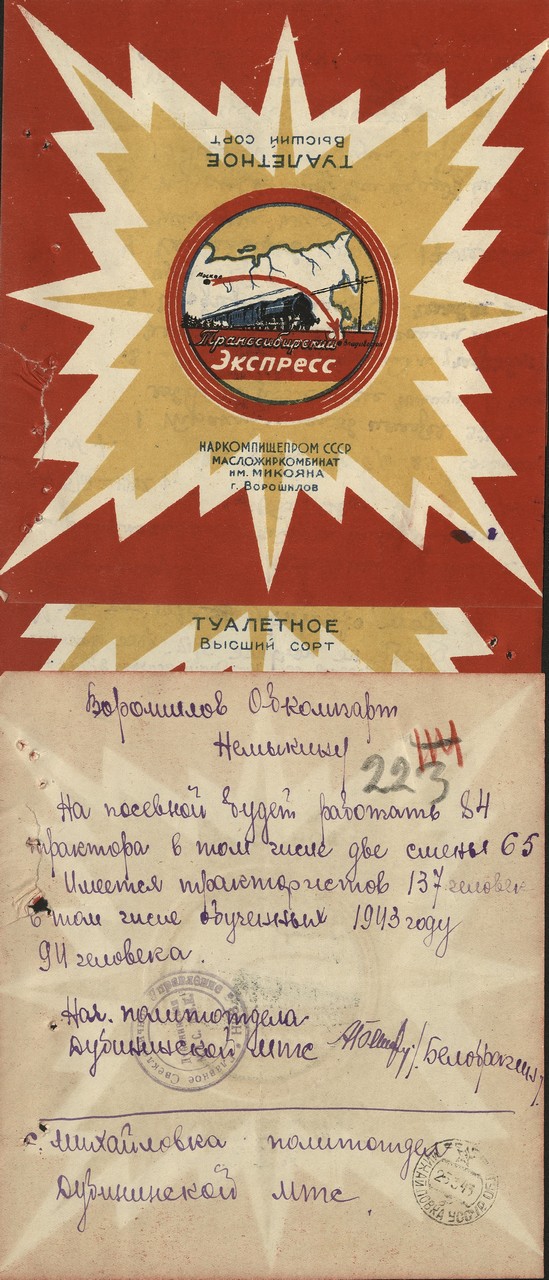 ТУАЛЕТНОЕ
Высший сорт
Москва
Транссибирский
Экспресс
НАРКОМПИЩЕПРОМ СССР
МАСЛОЖИРКОМБИНАТ
им. МИКОЯНА
г. Ворошилов
ТУАЛЕТНОЕ
Высший сорт
Ворошилов Обкомпарт
Немыкину
223
На посевной будет работать 84
трактора в том числе две смены 65
Имеется трактористов 137 человек
в том числе обученных 1943 году
94 человека.
Нач. политотдела
Дубининской МТС
Михайловка политотдел
Дубининской МТС